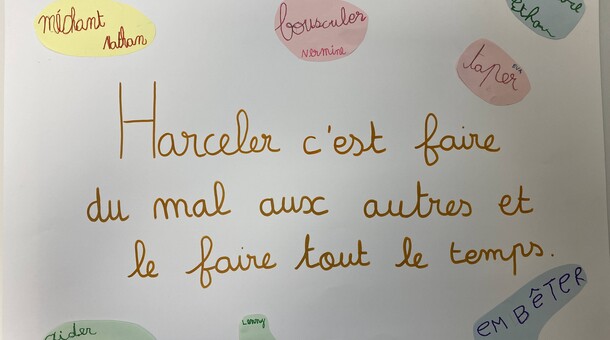 méchant
Nathan
bousculer
vermine
Ethan
taper
EVA
Harceler c'est faire
du mal aux autres et
le faire tout le temps.
aider
Lenny
EMBÊTER